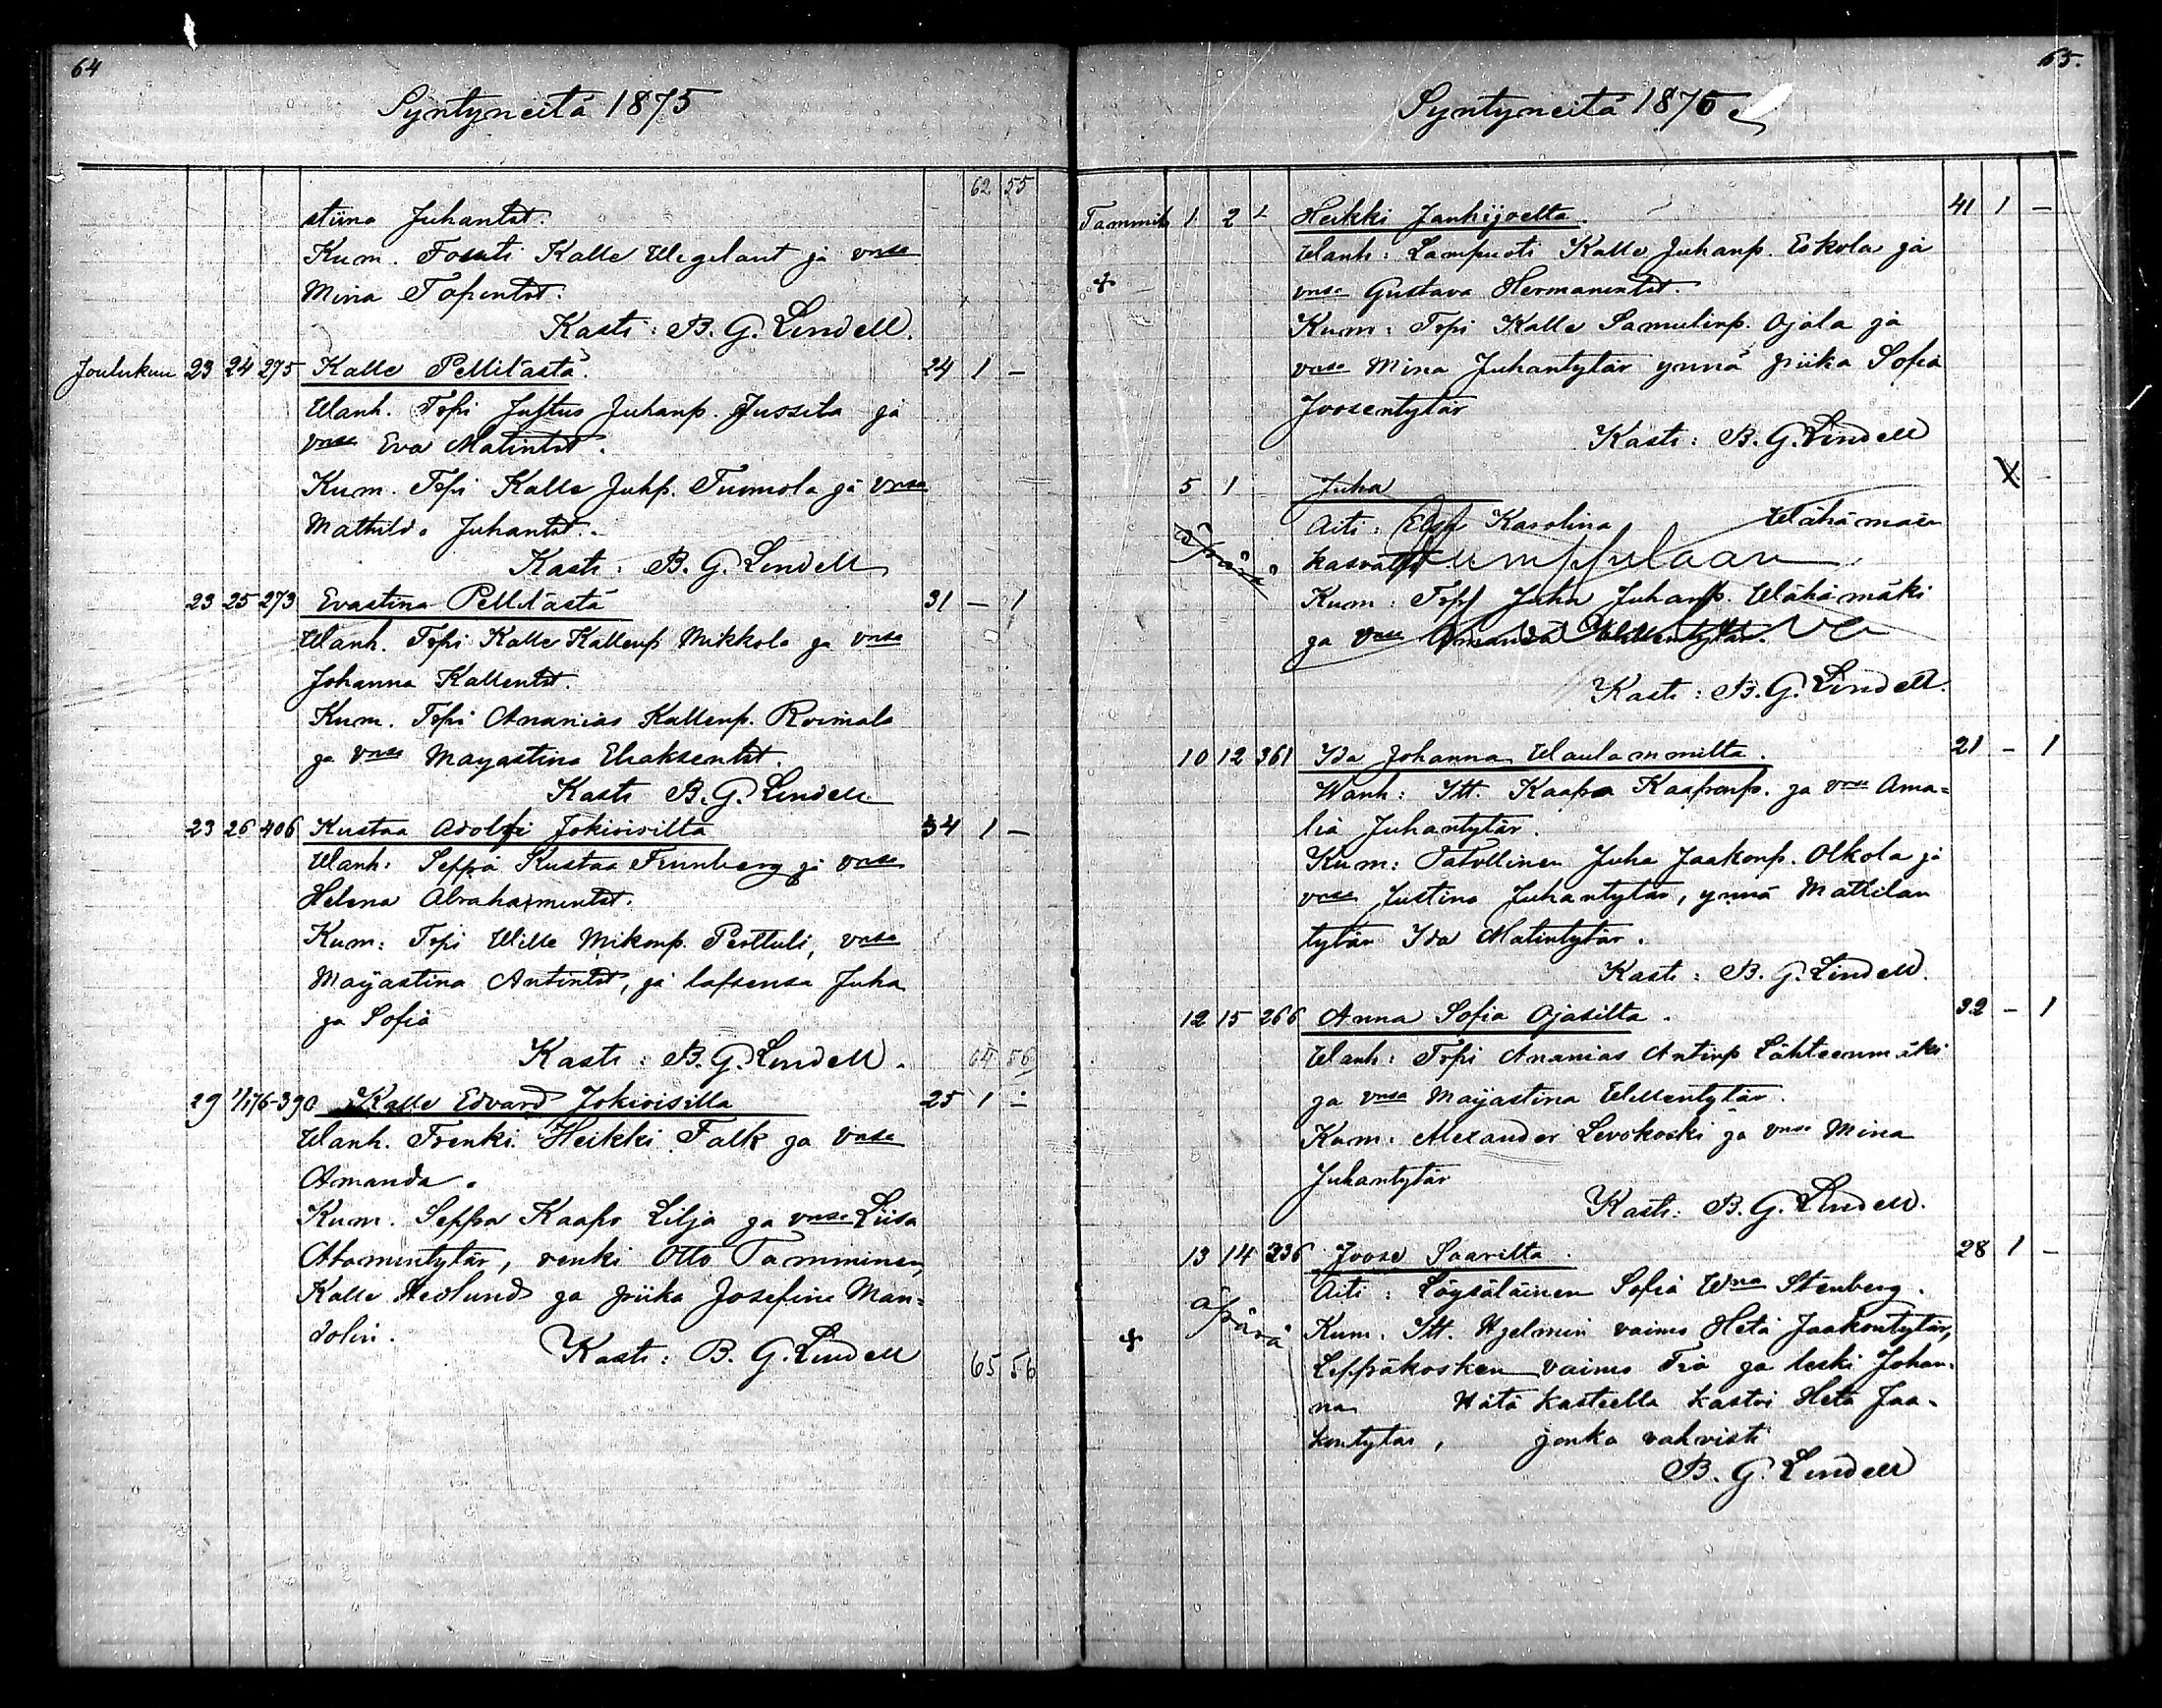 64
Syntyneitä 1875
62 55
stiina Juhantst.
Kum. Fouti Kalle Wegelant ja vmsa
Mina Topintst.
Kasti: B. G. Lindell.
Joulukuu 23 24 275 Kalle Pellilästä. 24 1 –
Wanh. Topi Justus Juhanp. Jussila ja
vmsa Eva Matintst.
Kum. Topi Kalle Juhp. Tuomola ja vmsa
Mathilda Juhantst.
Kasti: B. G. Lindell
23 25 273 Evastina Pellilästä 31 – 1
Wanh. Topi Kalle Kallenp Mikkola ja vmsa
Johanna Kallentst.
Kum. Topi Ananias Kallenp. Roimala
ja vmsa Mayastina Eliaksentst.
Kasti B. G. Lindell
23 26 406 Kustaa Adolfi Jokioisilta 34 1 –
Wanh: Seppä Kustaa Finnberg ja vmsa
Helena Abrahamintst.
Kum: Topi Wille Mikonp. Perttuli, vmsa
Mayastina Antintst, ja lapsensa Juha
ja Sofia
Kasti: B. G. Lindell. 64 56
29 1/1 76 390 Kalle Edvard Jokioisilla 25 1 –
Wanh. Trenki Heikki Falk ja vmsa
Amanda.
Kum. Seppä Kaapo Lilja ja vmsa Liisa
Atamintytär, renki Otto Tamminen,
Kalle Hedlund ja piika Josefine Man=
dolin.
Kasti: B. G. Lindell
65 56
65.
Syntyneitä 1876
Tammik 1 2 Heikki Janhijoelta. 41 1 –
Wanh: Lampuoti Kalle Juhanp. Eskola ja
vmsa Gustava Hermanintst.
Kum: Topi Kalle Samulinp. Ojala ja
vmsa Mina Juhantytär ynnä piika Sofia
Joosentytär
Kasti: B. G. Lindell
5 1 Juha X –
Äiti: Elsa Karolina Wähämäen
äpärä kasvatti Humppilaan
Kum: Topi Juha Juhanp. Wähämäki
ja vmsa Amanda Willentytär.
Kasti: B. G. Lindell.
10 12 361 Ida Johanna Waulammilta. 21 – 1
Wanh: Itt. Kaapo Kaaponp. ja vmsa Ama=
lia Juhantytär.
Kum: Talollinen Juha Jaakonp. Olkola ja
vmsa Justina Juhantytär, ynnä Mattilan
tytär Ida Matintytär.
Kasti: B. G. Lindell.
12 15 266 Anna Sofia Ojasilta. 32 – 1
Wanh: Topi Ananias Antinp Lähteenmäki
ja vmsa Mayastina Willentytär.
Kum: Alexander Levokoski ja vmsa Mina
Juhantytär
Kasti: B. G. Lindell.
13 14 236 Joose Saarilta. 28 1 –
äpärä Äiti: Löysäläinen Sofia Wna Stenberg.
Kum. Itt. Hjelmin vaimo Hetä Jaakontytär,
Leppäkosken vaimo Fia ja leski Johan=
na Hätä kasteella kastoi Hetä Jaa=
kontytär, jonka vahvisti
B. G. Lindell